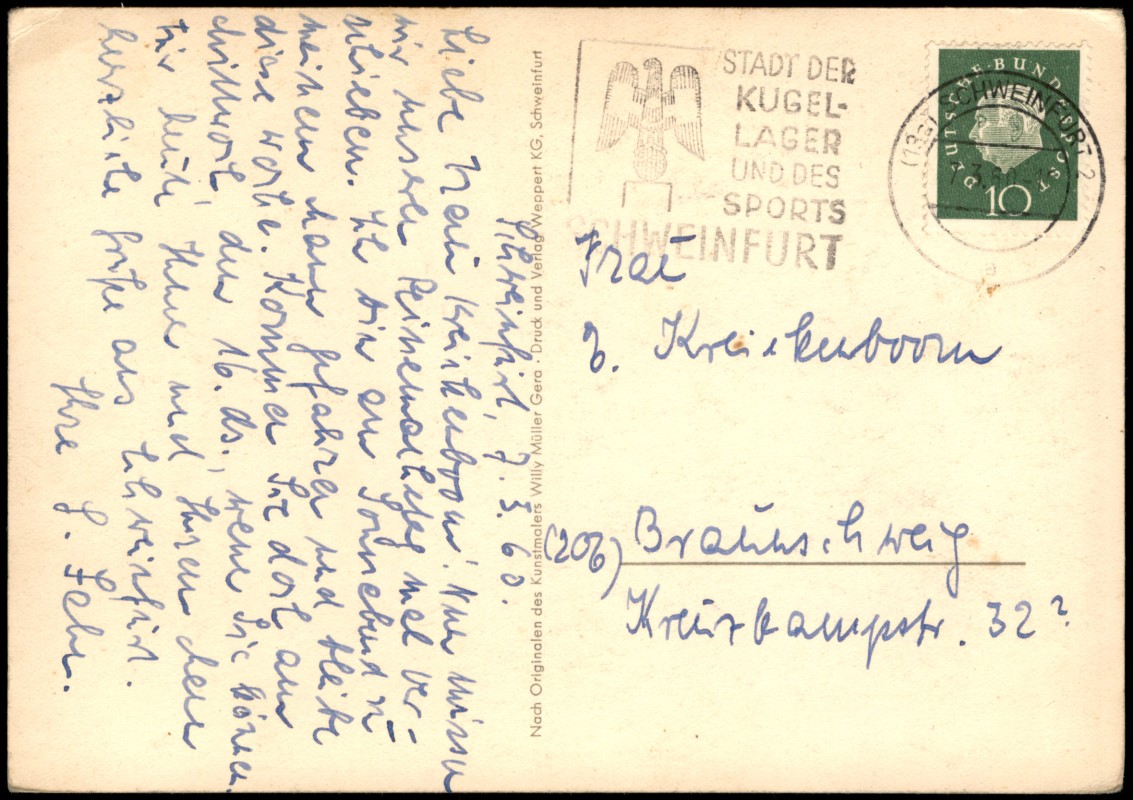 Schweinfurt, 7. 3. 60.
Liebe Frau Kreikenboom! Nun müssen
wir unseren Reinemachetag mal ver-
schieben. Ich bin am Sonnabend zu
meinem Mann gefahren und bleibe
diese Woche. Kommen Sie dort am
Mittwoch, den 16. ds., wenn Sie können.
Für heute Ihnen und Ihren
herzliche Grüße aus Schweinfurt.
Ihre G.
Nach Originalen des Kunstmalers Willy Müller Gera · Druck und Verlag Weppert KG, Schweinfurt
STADT DER
KUGEL-
LAGER
UND DES
SPORTS
SCHWEINFURT
DEUTSCHE·BUNDESPOST
10
SCHWEINFURT 2
a
Frau
Kreikenboom
(20b) Braunschweig
Kreuzkampstr. 32?